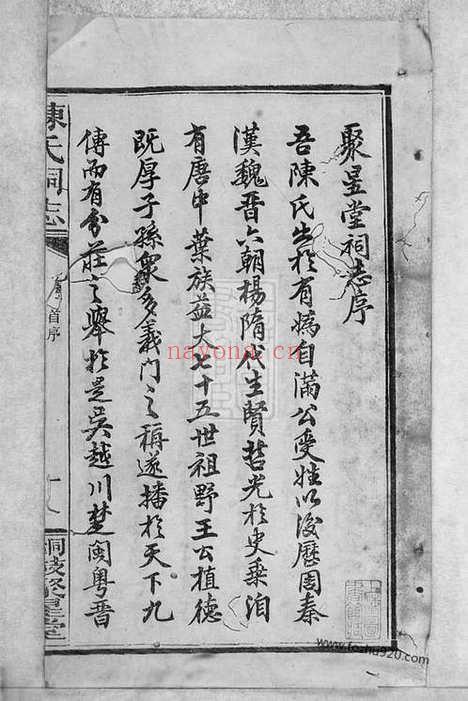 聚星堂祠志序
吾陳氏出於有媯自滿公受姓以後歷周秦
漢魏晉六朝楊隋代生賢哲光於史乘洎
有唐中葉族益大七十五世祖野王公植德
既厚子孫衆多義門之稱遂播於天下九
傳而有分莊之舉於是吳越川楚閩粤晉
陳氏祠志
首序
聚星堂
nayona.cn
www.fozhu920.com